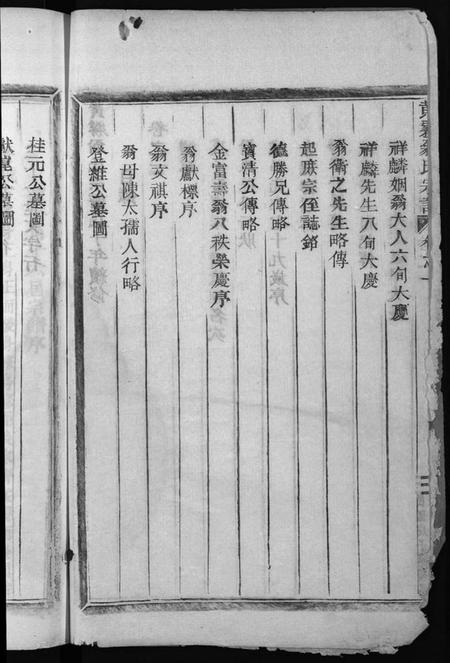 祥麟姻翁大人六旬大慶
祥麟先生八旬大慶
翁衛之先生略傳
起厥宗侄誌銘
德勝兄傳略
賓清公傳略
金富壽翁八秩榮慶序
翁獻標序
翁文祺序
翁母陳太孺人行略
登雒公墓圖
桂元公墓圖
公墓圖